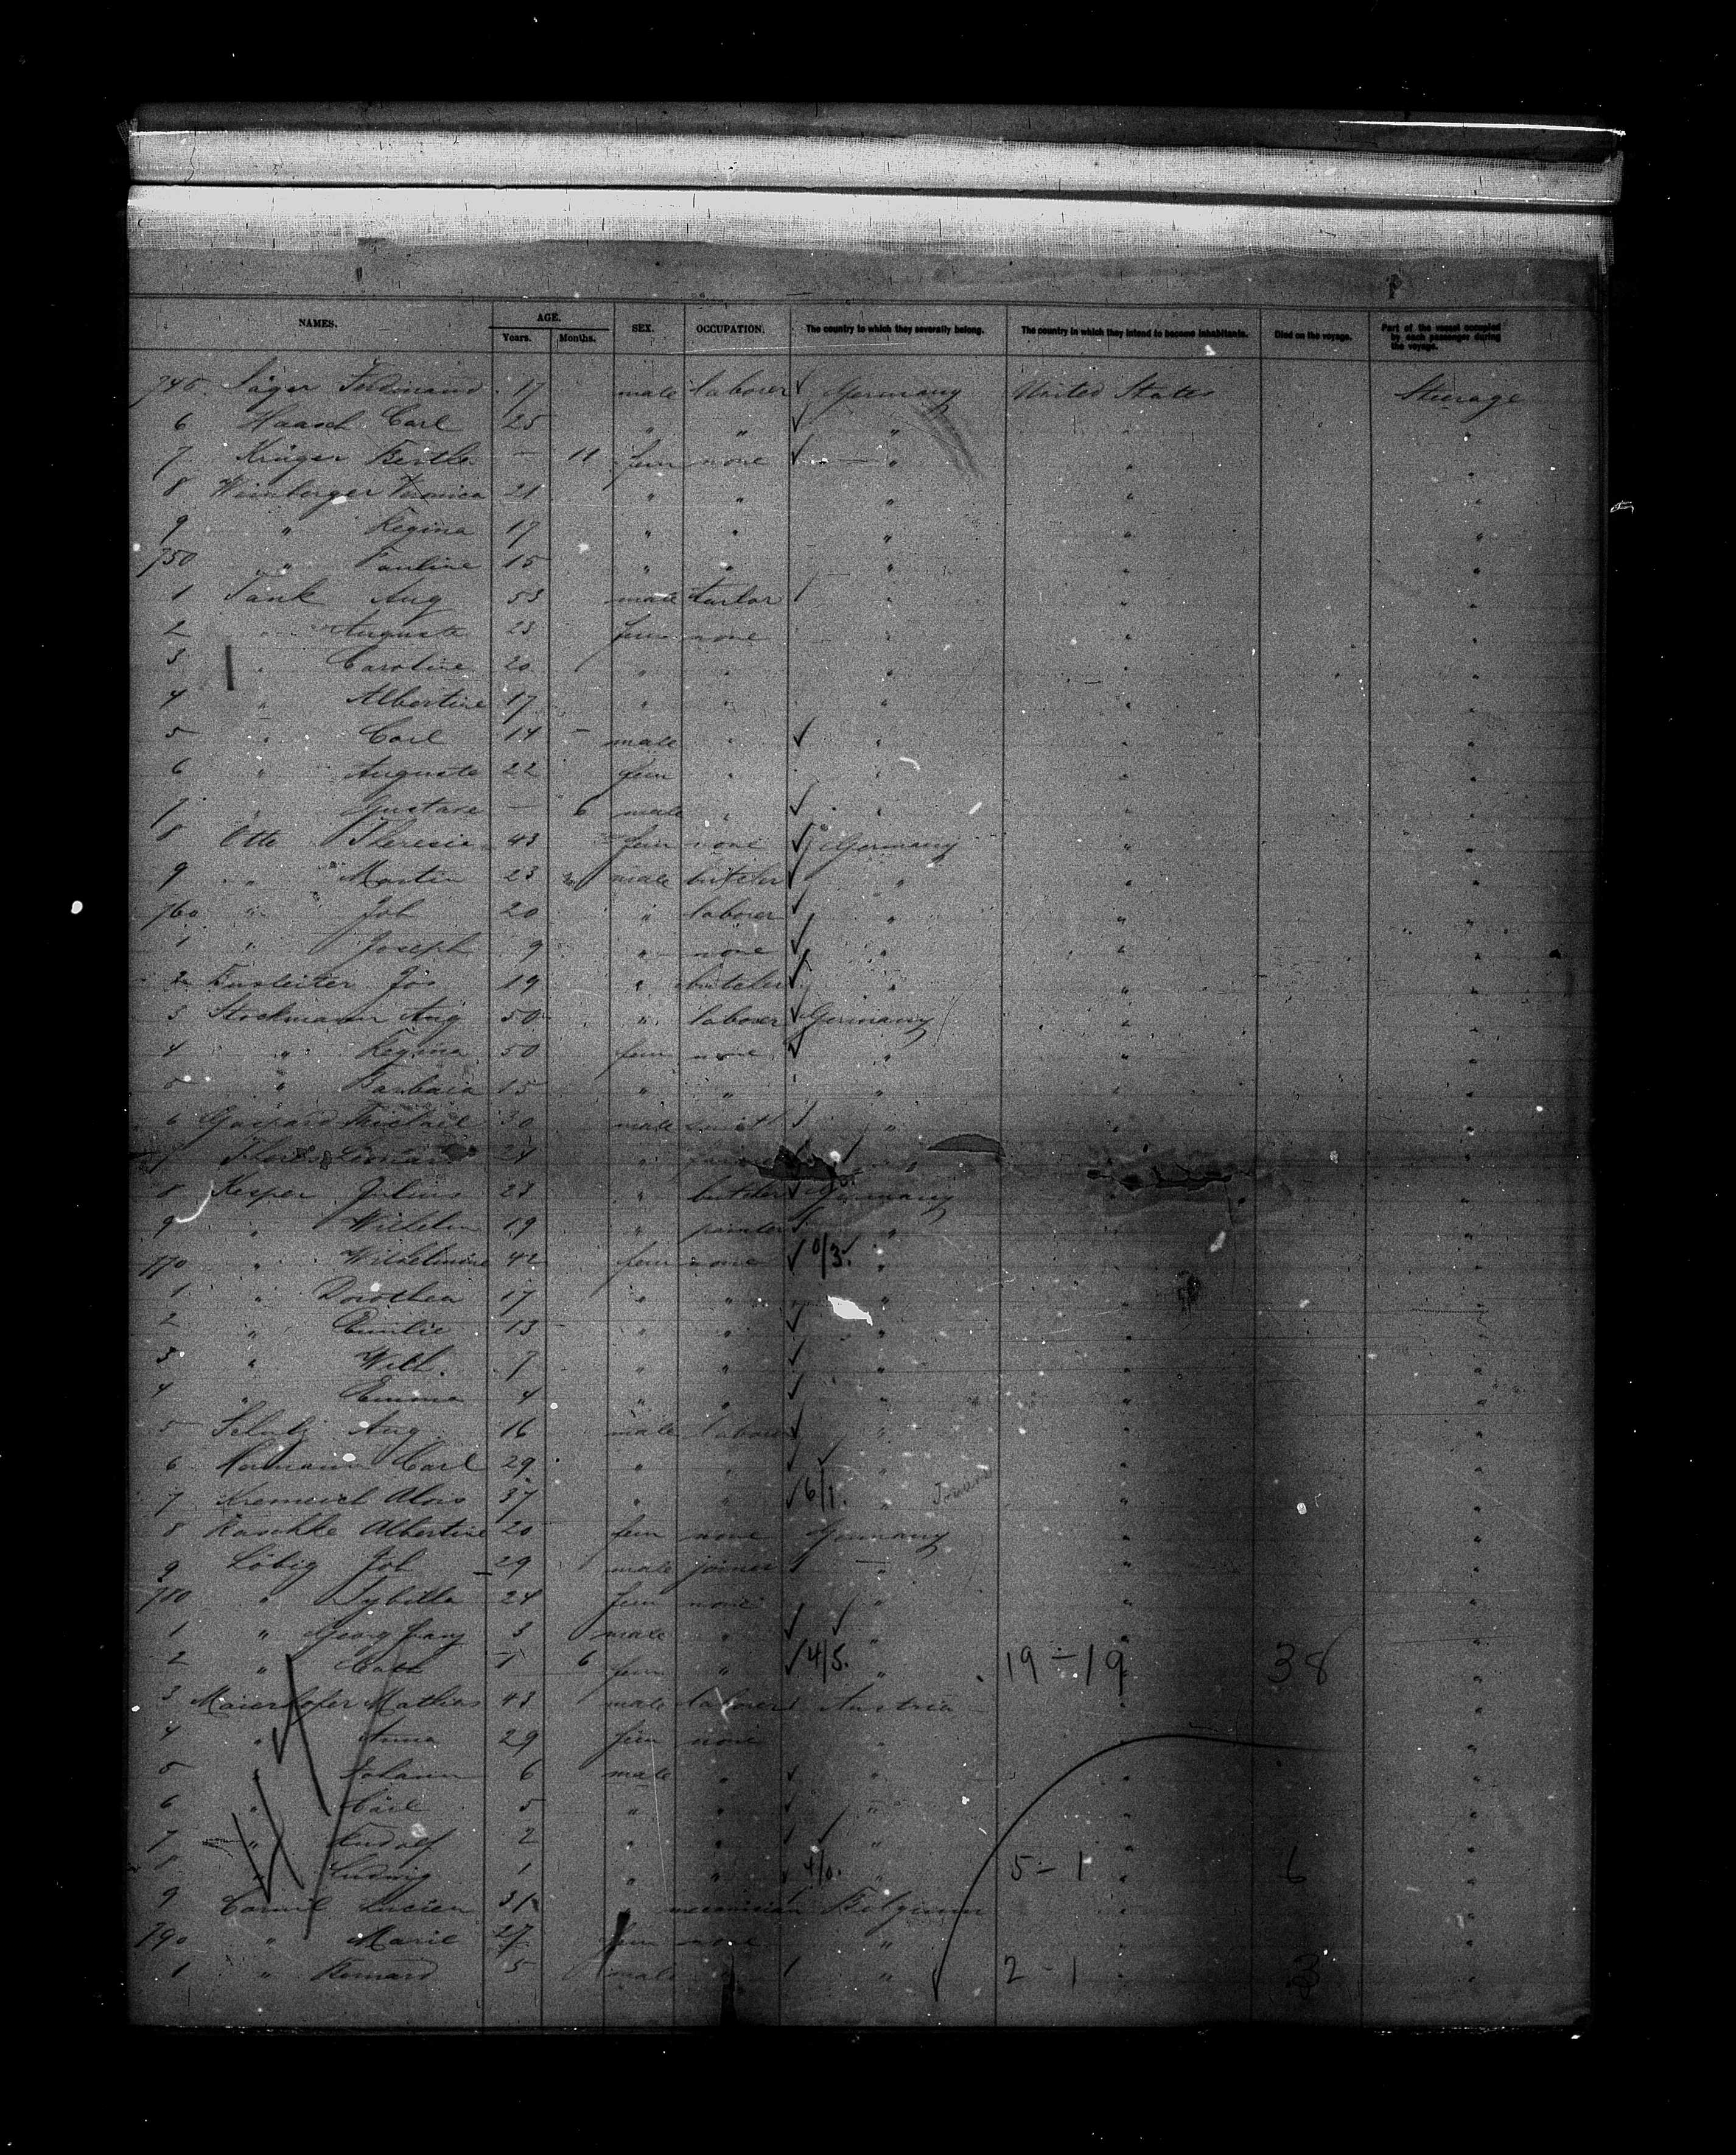 NAMES. AGE. SEX. OCCUPATION. The country to which they severally belong. The country in which they intend to become inhabitants. Died on the voyage. Part of the vessel occupied by each passenger during the voyage.
Years. Months.
745 Jäger Ferdinand 17 male laborer Germany United States Steerage
6 Haasch Carl 25 " " " " "
7 Krüger Bertha - 11 fem none " " "
8 Weinberger Veronica 21 " " " " "
9 " Regina 17 " " " " "
750 " Pauline 15 " " " " "
1 Tank Aug 53 male " " "
2 " Auguste 23 fem none " " "
3 " Caroline 20 " " " " "
4 " Albertine 17 " " " " "
5 " Carl 14 male " " " "
6 " Auguste 22 fem " " " "
7 " Gustave - 6 male " " " "
8 Otto Theresia 43 fem none Germany " "
9 " Martin 23 male butcher " " "
760 " Joh 20 " laborer " " "
1 " Joseph 9 " none " " "
2 Jos 19 " butcher " " "
3 Stockmann Aug 50 " laborer Germany " "
4 " Regina 50 fem none " " "
5 " Barbara 15 " " " " "
6 30 male smith " " "
7 24 " " "
8 Kesper Julius 23 " butcher Germany "
9 " Wilhelm 19 " painter " " "
770 " Wilhelmine 42 fem none 0/3. " " "
1 " Dorothea 17 " " " " "
2 " Emilie 13 " " " " "
3 " Wilh. 7 " " " " "
4 " Emma 4 " " " " "
5 Aug 16 male laborer " " "
6 Carl 29 " " " " "
7 Alois 37 " " 6/1. " " "
8 Raschke Albertine 20 fem none Germany " "
9 Löbig Joh 29 male joiner " " "
780 " Sybilla 24 fem none " " "
1 " Georg Franz 3 male " " " "
2 " Cath 1 6 fem " 4/5. " 19-19 38 "
3 Maierhofer Mathias 43 male laborer Austria " "
4 " Anna 29 fem none " " "
5 " Johann 6 male " " " "
6 " Carl 5 " " " " "
7 " Rudolf 2 " " " " "
8 " Ludwig 1 " " 4/0. 5-1 " 6 "
9 Lucien 31 " Belgium " "
790 " Marie 27 fem none " " "
1 " Bernard 5 male " " 2-1 " 3 "